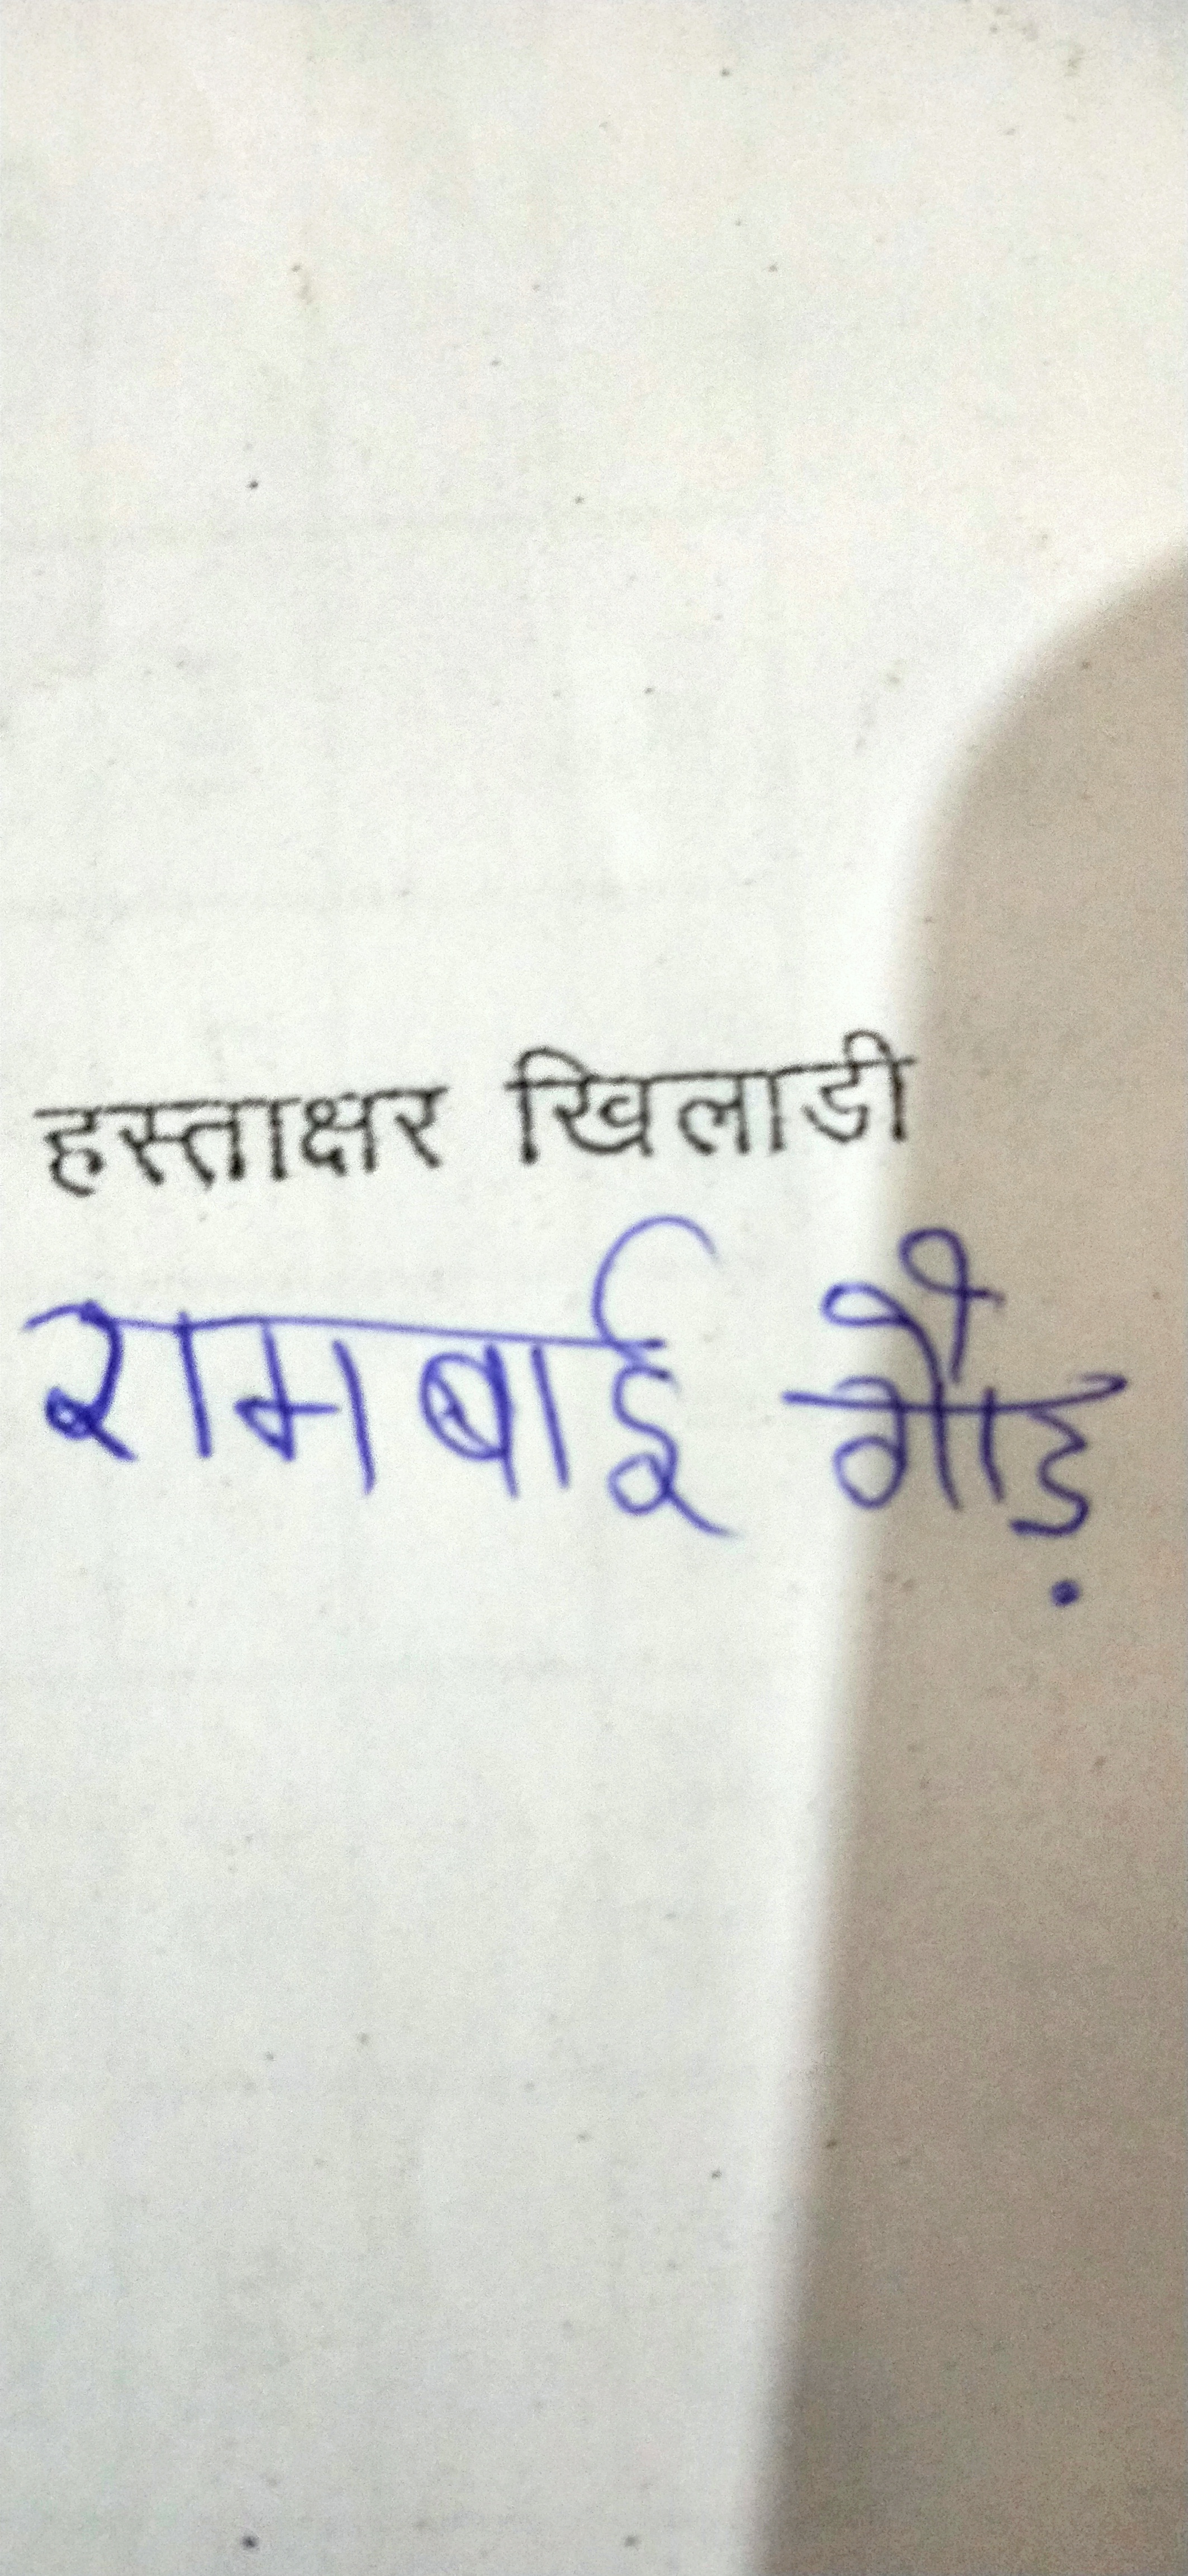 हस्ताक्षर खिलाडी
रामबाई गौड़